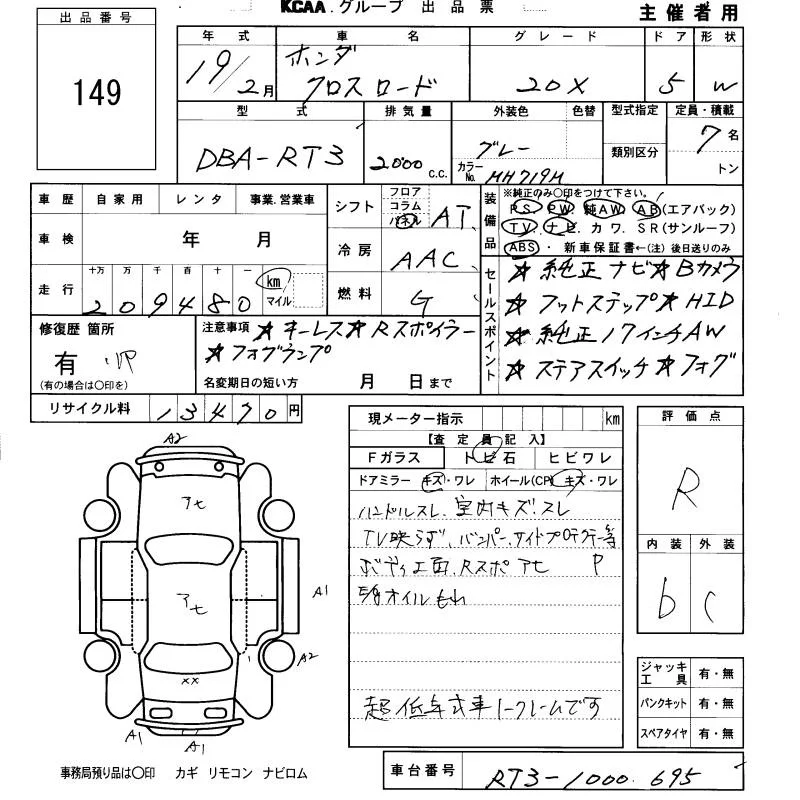 KCAA.グループ 出品票
主催者用
出品番号
149
年式 車名 グレード ドア 形状
19/2月 ホンダ クロスロード 20X 5 W
型式 排気量 外装色 色替 型式指定 定員・積載
DBA-RT3 2000 c.c. グレー 類別区分 7名
カラーNo. MH719M トン
車歴 自家用 レンタ 事業.営業車
車検 年 月
走行 十万 万 千 百 十 一 km マイル
209480
シフト フロア コラム パネル AT
冷房 AAC
燃料 G
装備品 ※純正のみ〇印をつけて下さい。
PS. PW. 純AW. AB(エアバック)
TV. ナビ. カワ. SR(サンルーフ)
ABS ・ 新車保証書←(注) 後日送りのみ
セールスポイント
☆純正ナビ☆Bカメラ
☆フットステップ☆HID
☆純正17インチAW
☆ステアスイッチ☆フォグ
修復歴 箇所
有
(有の場合は〇印を)
注意事項 ☆キーレス☆Rスポイラー
☆フォグランプ
名変期日の短い方 月 日まで
リサイクル料 13470円
現メーター指示 km
【査定員記入】
Fガラス トビ石 ヒビワレ
ドアミラー キズ・ワレ ホイール(CP) キズ・ワレ
ハンドルスレ、室内キズスレ
TV映らず、バンパー、サイドプロテクター等
ボディ上面、Rスポ アセ P
E/g オイルもれ
超低年式車 ノークレームです
評価点
R
内装 外装
b C
ジャッキ工具 有・無
パンクキット 有・無
スペアタイヤ 有・無
A2
アセ
アセ
A1
A2
XX
A1
A1
事務局預り品は〇印 カギ リモコン ナビロム
車台番号 RT3-1000695